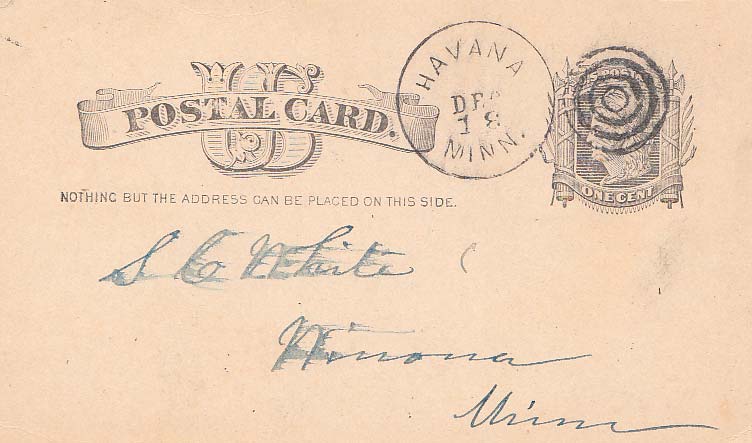 US
POSTAL CARD.
HAVANA
DEC
18
MINN.
U.S. POSTAGE
ONE CENT
NOTHING BUT THE ADDRESS CAN BE PLACED ON THIS SIDE.
S C White
Winona
Minn